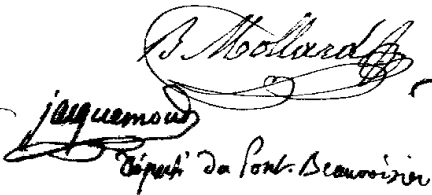 B Mollard
jacquemoud
Député du Pont-Beauvoisier